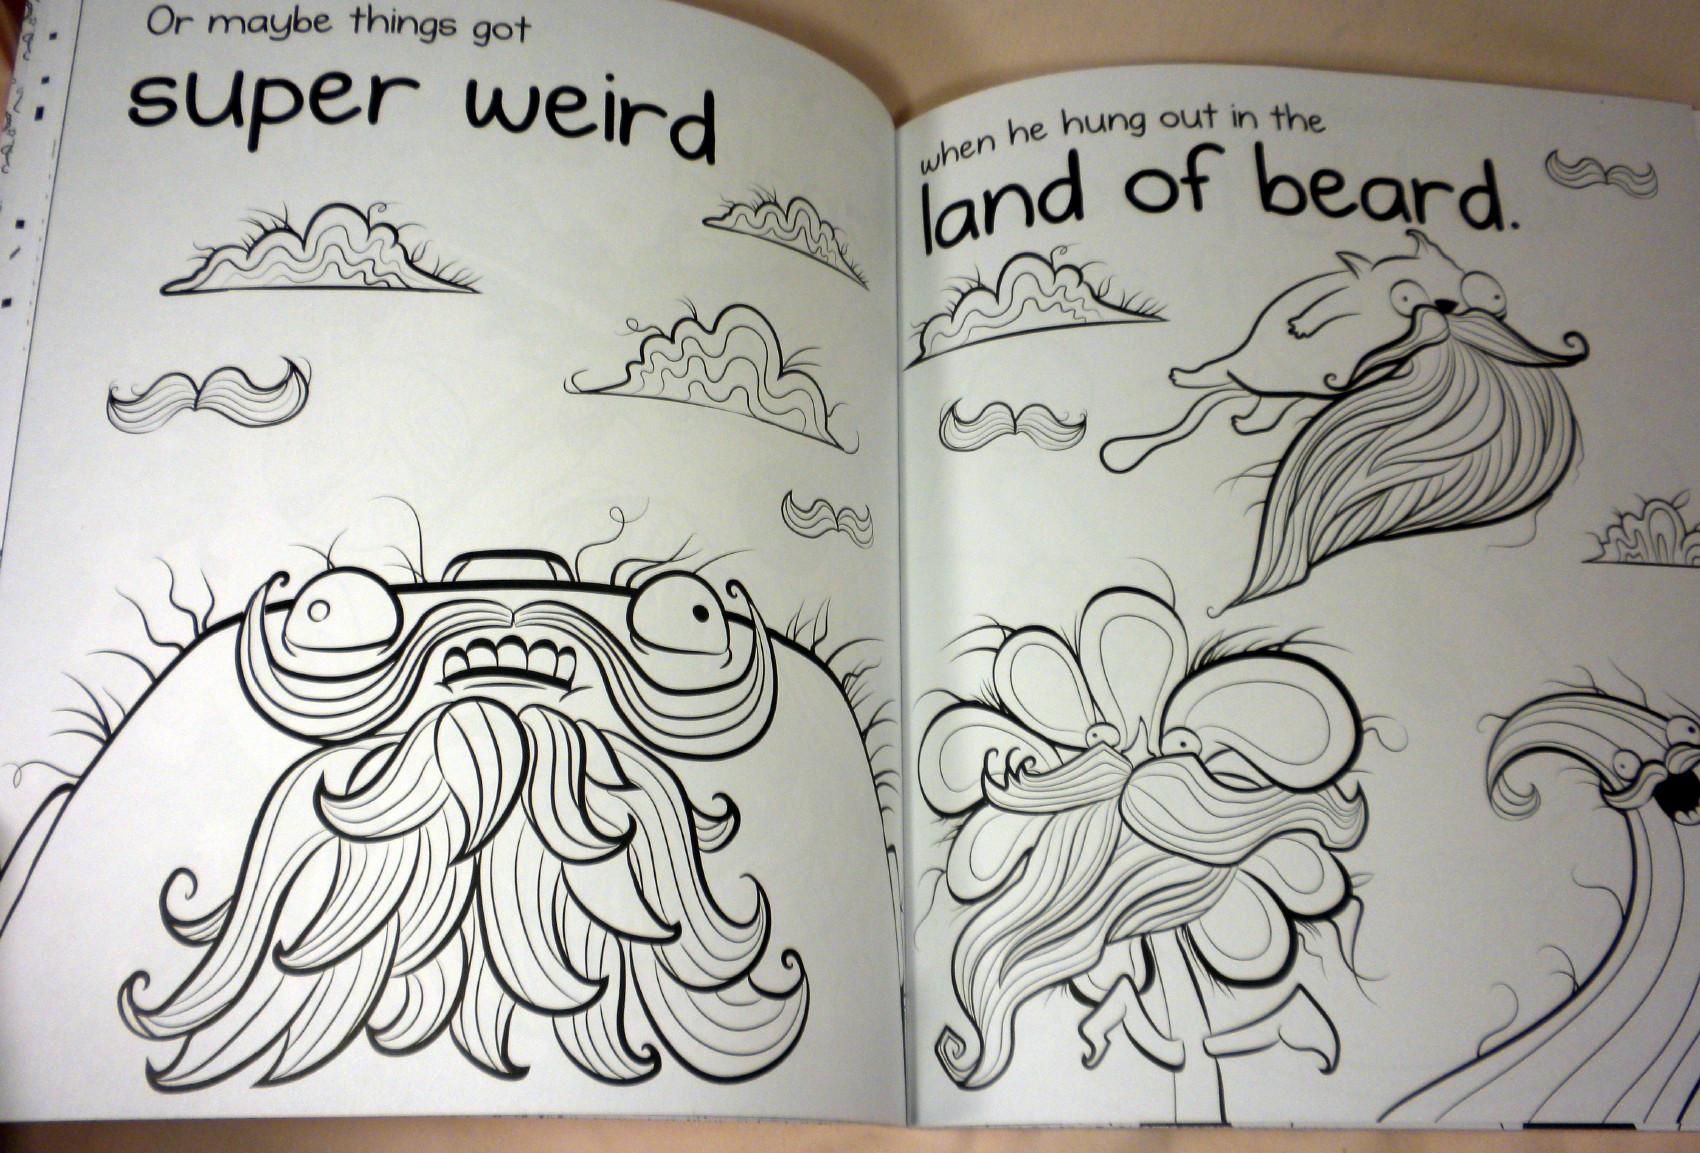 Or maybe things got
super weird
when he hung out in the
land of beard.